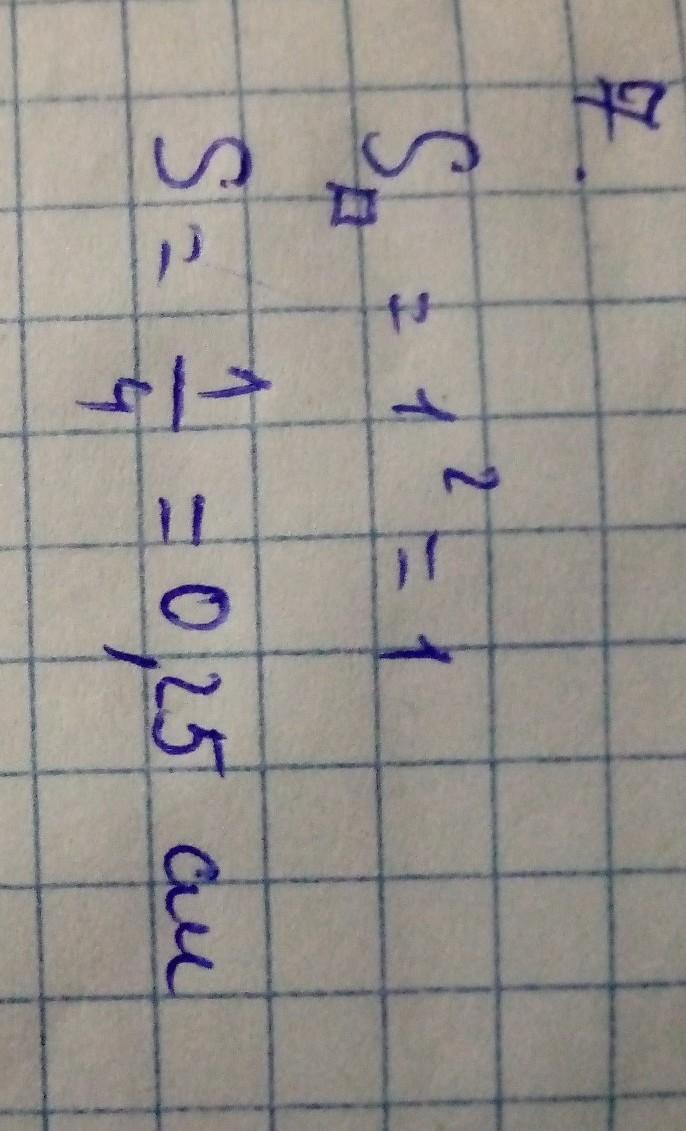 7.
S□ = 1² = 1
S = 1/4 = 0,25 см